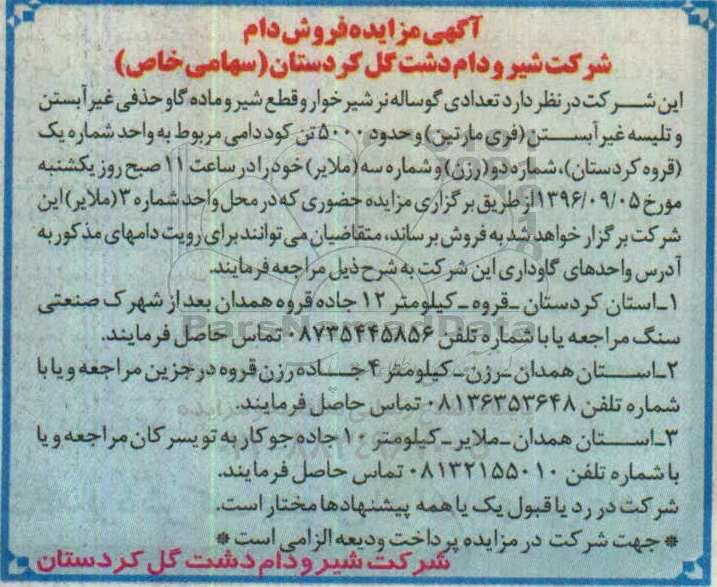 آگهی مزایده فروش دام
شرکت شیر و دام دشت گل کردستان (سهامی خاص)
این شرکت در نظر دارد تعدادی گوساله نر شیرخوار و قطع شیر و ماده گاو حذفی غیرآبستن
و تلیسه غیرآبستن (فری مارتین) و حدود ۵۰۰۰ تن کود دامی مربوط به واحد شماره یک
(قروه کردستان)، شماره دو (رزن) و شماره سه (ملایر) خود را در ساعت ۱۱ صبح روز یکشنبه
مورخ ۱۳۹۶/۰۹/۰۵ از طریق برگزاری مزایده حضوری که در محل واحد شماره ۳ (ملایر) این
شرکت برگزار خواهد شد به فروش برساند، متقاضیان می توانند برای رویت دامهای مذکور به
آدرس واحدهای گاوداری این شرکت به شرح ذیل مراجعه فرمایند.
۱ـ استان کردستان ـ قروه ـ کیلومتر ۱۲ جاده قروه همدان بعد از شهرک صنعتی
سنگ مراجعه یا با شماره تلفن ۰۸۷۳۵۴۴۵۸۵۶ تماس حاصل فرمایند.
۲ـ استان همدان ـ رزن ـ کیلومتر ۴ جاده رزن قروه درجزین مراجعه و یا با
شماره تلفن ۰۸۱۳۶۳۵۳۶۴۸ تماس حاصل فرمایند.
۳ـ استان همدان ـ ملایر ـ کیلومتر ۱۰ جاده جوکار به تویسرکان مراجعه و یا
با شماره تلفن ۰۸۱۳۲۱۵۵۰۱۰ تماس حاصل فرمایند.
شرکت در رد یا قبول یک یا همه پیشنهادها مختار است.
* جهت شرکت در مزایده پرداخت ودیعه الزامی است *
شرکت شیر و دام دشت گل کردستان
ParsNamadData